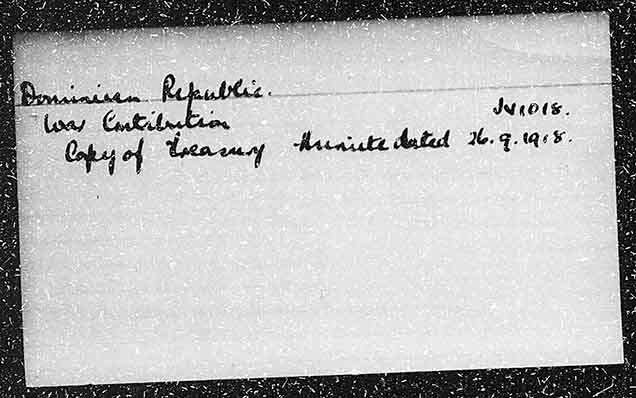 Dominican Republic.
War Contribution
Copy of Treasury Minute dated 26.9.1918.